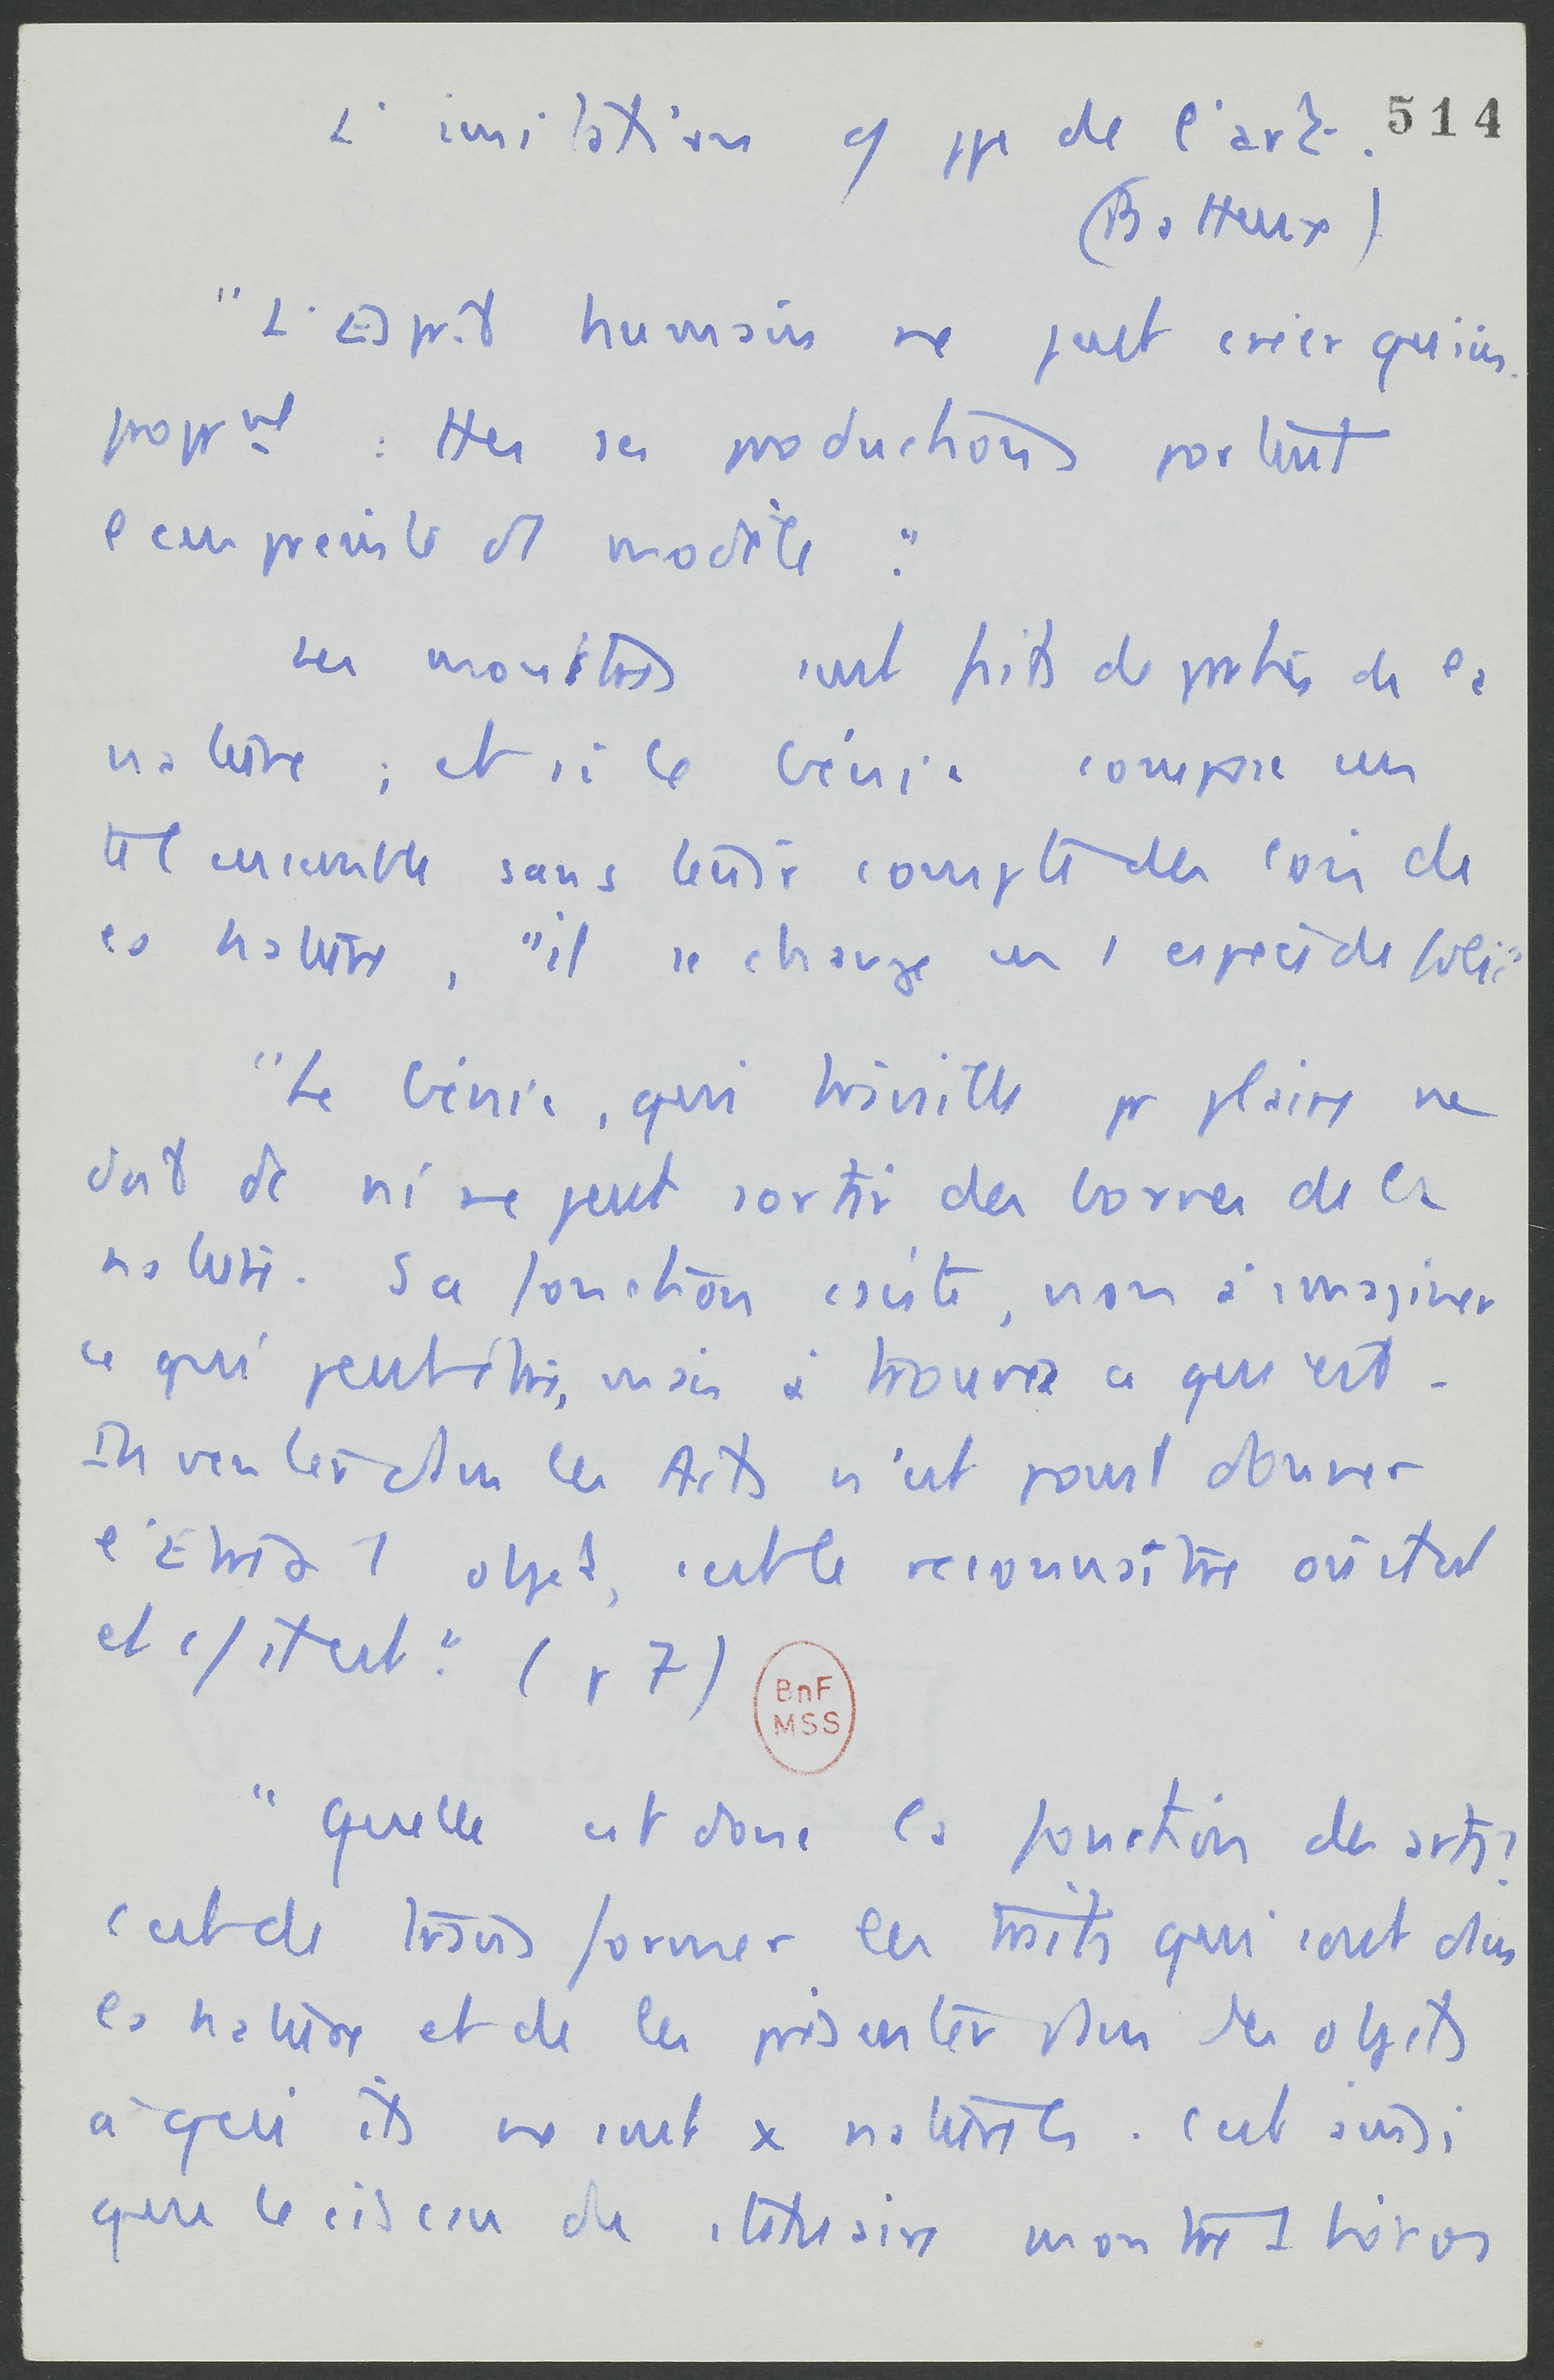 L'imitation cf ppe de l'art. 514
(Batteux)
"L'Esprit humain ne peut créer qu'im-
propmt : ttes ses productions portent
l'empreinte d'1 modèle."
Les monstres sont faits de parties de la
nature ; et si le Génie compose un
tel ensemble sans tenir compte des lois de
la nature, "il se change en 1 espèce de folie"
"Le Génie, qui travaille pr plaire ne
doit dc ni ne peut sortir des bornes de la
nature. Sa fonction csiste, non à imaginer
ce qui peut être, mais à trouver ce qui est.
Inventer dans les Arts n'est point donner
l'Etre à 1 objet, c'est le reconnaître où il est
et cf il est." (p 7)
BnF
MSS
"Quelle est donc la fonction des arts?
C'est de transformer les traits qui sont dans
la nature et de les présenter dans des objets
à qui ils ne sont x naturels. C'est ainsi
que le ciseau du statuaire montre 1 héros